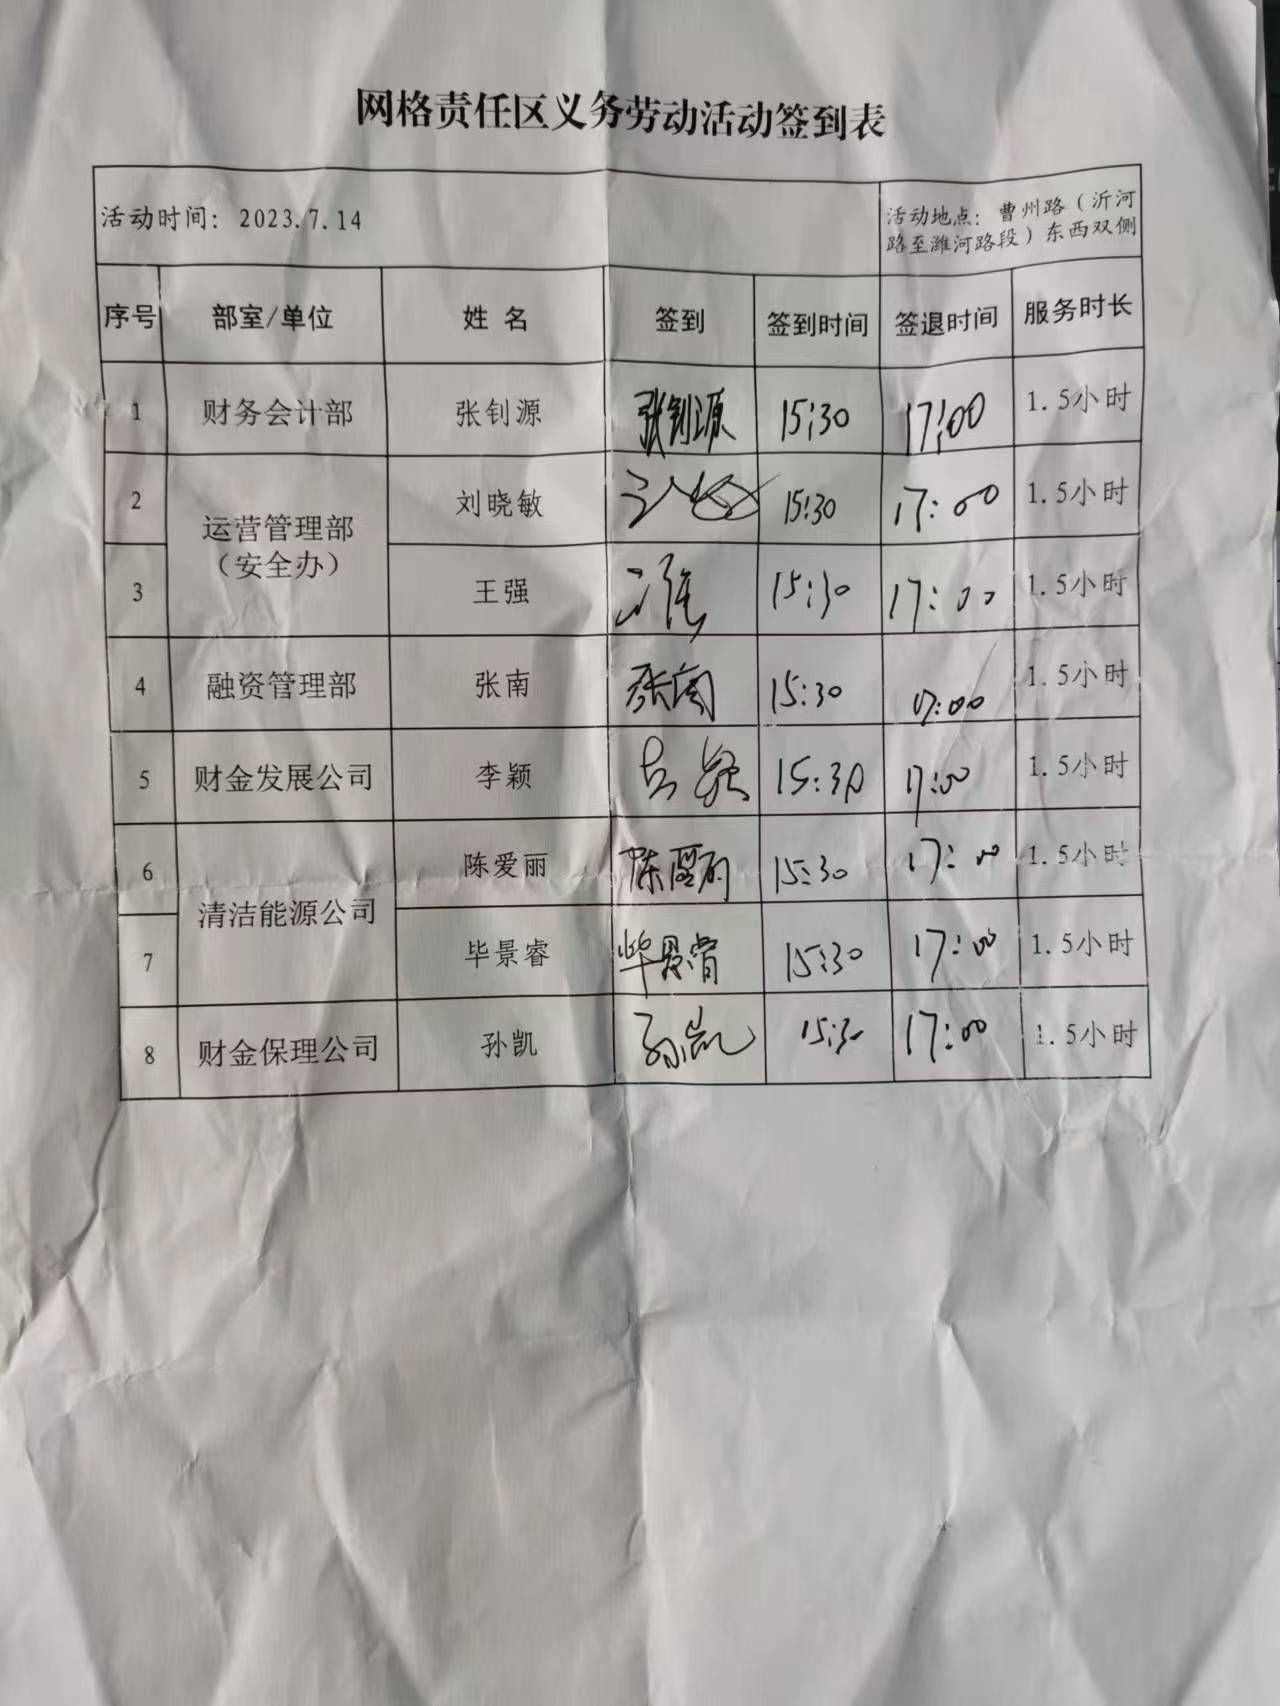 网格责任区义务劳动活动签到表
活动时间：2023.7.14
活动地点：曹州路（沂河
路至潍河路段）东西双侧
序号 部室/单位 姓 名 签到 签到时间 签退时间 服务时长
1 财务会计部 张钊源 张钊源 15:30 17:00 1.5小时
2 运营管理部 刘晓敏 15:30 17:00 1.5小时
（安全办）
3 王强 15:30 17:00 1.5小时
4 融资管理部 张南 张南 15:30 17:00 1.5小时
5 财金发展公司 李颖 李颖 15:30 17:00 1.5小时
6 清洁能源公司 陈爱丽 陈爱丽 15:30 17:00 1.5小时
7 毕景睿 毕景睿 15:30 17:00 1.5小时
8 财金保理公司 孙凯 孙凯 15:30 17:00 1.5小时